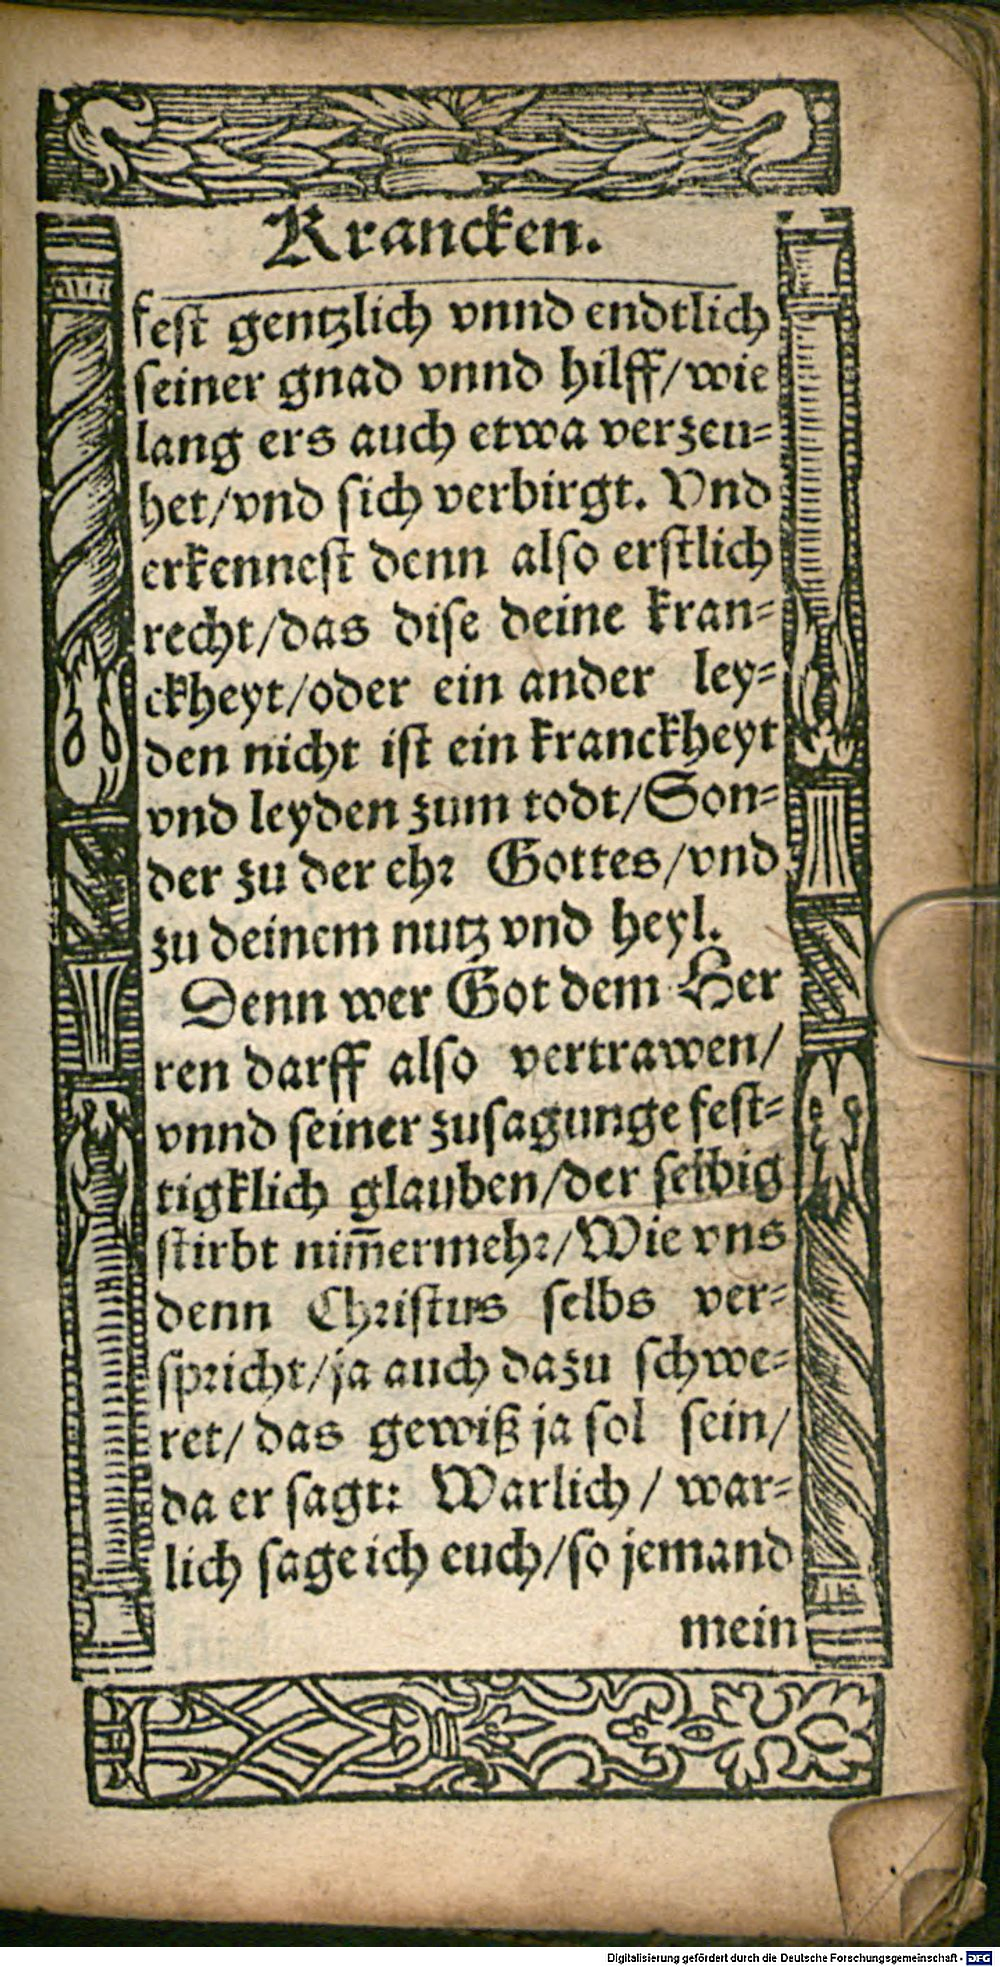 Krancken.
fest gentzlich vnnd endtlich
seiner gnad vnnd hilff/wie
lang ers auch etwa verzeu-
het/vnd sich verbirgt. Vnd
erkennest denn also erstlich
recht/das dise deine kran-
ckheyt/oder ein ander ley-
den nicht ist ein kranckheyt
vnd leyden zum todt/Son-
der zu der ehr Gottes/vnd
zu deinem nutz vnd heyl.
Denn wer Got dem Her
ren darff also vertrawen/
vnnd seiner zusagunge fest-
tigklich glauben/der selbig
stirbt nim̄ermehr/Wie vns
denn Christus selbs ver-
spricht/ja auch dazu schwe-
ret/das gewiß ja sol sein/
da er sagt: Warlich/war-
lich sage ich euch/so jemand
mein
Digitalisierung gefördert durch die Deutsche Forschungsgemeinschaft - DFG